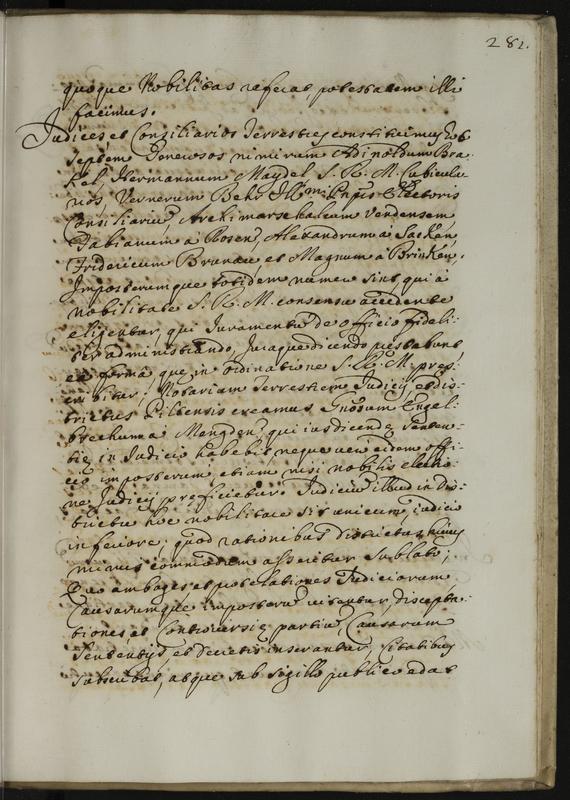 281.
quoque Nobilitas referat, potestatem illi
facimus.
Judices et Consiliarios Terrestres constituimus hos
septem Generosos nimirum Adinoldum Bra-
kel, Hermannum Maydel S. R. M. Cubicula-
rios, Vernerum Behr Illmi Pnpis Electoris
Consiliariu, Archimarschalcum Vendensem
Fabianum a Rosen, Alexandrum a Sacken,
Fridericum Brunau et Magnum a Brinken,
Imposterumque totidem numero sint, qui à
nobilitate S. R. M. consensu accedente
eligentur, qui Juramentu de officio fideli-
ter administrando, Juraque dicendo præstabunt
ea forma que in ordinatione S. R. M. præs-
cribitur. Notarium Terrestrem Judicij et dis-
trictus Piltensis creamus Gnosum Engel-
brechtum à Mengden, qui ius dicendæ senten-
tiæ in Judicio habebit, neque vero eidem offi-
cio imposterum etiam nisi nobilis electio-
ne Judicij preficietur. Judiciu illud in Dis-
trictu hoc nobilitate sit unicum, iudicio
inferiore, quod rationibus districtus huius
minus commodum asseritur sublato;
Quo ambages, et protelationes Judiciorum
Causarumque imposteru vitentur, discepta-
tiones, et Controversiæ partiu Causarum
Sententijs, et decretis inserantur, Citatibus
subscribat, atque sub sigillo publico edat